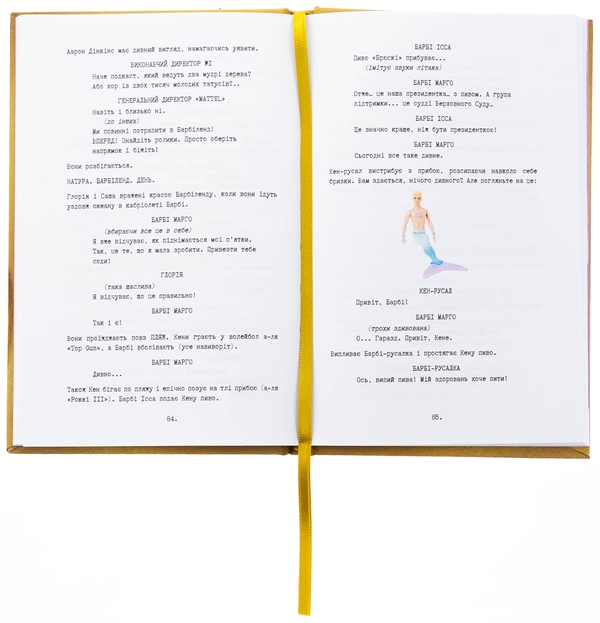 Аарон Дінкінс має дивний вигляд, намагаючись уявити.
ВИКОНАВЧИЙ ДИРЕКТОР №1
Наче подкаст, який ведуть два мудрі дерева?
Або хор із двох тисяч молодих татусів?..
ГЕНЕРАЛЬНИЙ ДИРЕКТОР «MATTEL»
Навіть і близько ні.
(до інших)
Ми повинні потрапити в Барбіленд!
ВПЕРЕД! Знайдіть ролики. Просто оберіть
напрямок і біжіть!
Вони розбігаються.
НАТУРА. БАРБІЛЕНД. ДЕНЬ.
Глорія і Саша вражені красою Барбіленду, коли вони їдуть
уздовж океану в кабріолеті Барбі.
БАРБІ МАРГО
(вбираючи все це в себе)
Я вже відчуваю, як піднімається мої п'ятки.
Так, це те, що я мала зробити. Привезти тебе
сюди!
ГЛОРІЯ
(така щаслива)
Я відчуваю, що це правильно!
БАРБІ МАРГО
Так і є!
Вони проїжджають повз ПЛЯЖ. Кени грають у волейбол а-ля
«Top Gun», а Барбі вболівають (усе навиворіт).
БАРБІ МАРГО
Дивно...
Також Кен бігає по пляжу і епічно позує на тлі прибою (а-ля
«Роккі III»). Барбі Ісса подає Кену пиво.
84.
БАРБІ ІССА
Пиво «Брескі» прибуває...
(імітує звуки літака)
БАРБІ МАРГО
Отже… це наша президентка… з пивом. А група
підтримки... це судді Верховного Суду…
БАРБІ ІССА
Це значно краще, ніж бути президенткою!
БАРБІ МАРГО
Сьогодні все таке дивне.
Кен-русал вистрибує з прибою, розсипаючи навколо себе
бризки. Вам здається, нічого дивного? Але погляньте на це:
КЕН-РУСАЛ
Привіт, Барбі!
БАРБІ МАРГО
(трохи здивована)
О... Гаразд. Привіт, Кене.
Випливає Барбі-русалка і простягає Кену пиво.
БАРБІ-РУСАЛКА
Ось, випий пива! Мій здоровань хоче пити!
85.